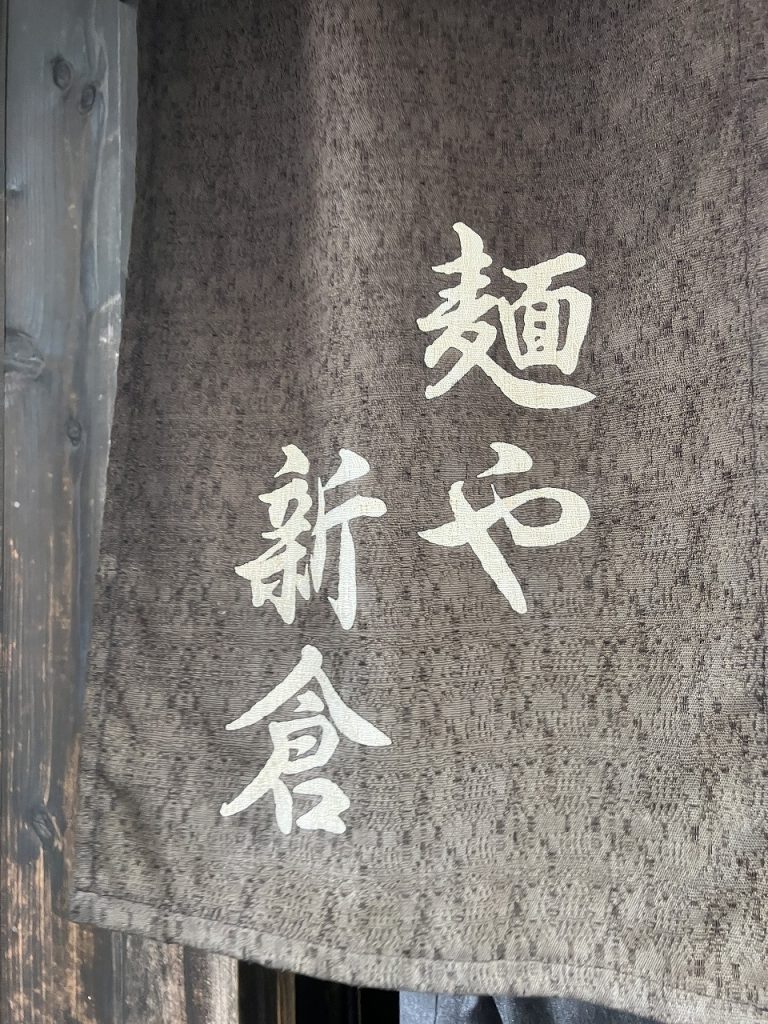 麺や
新倉